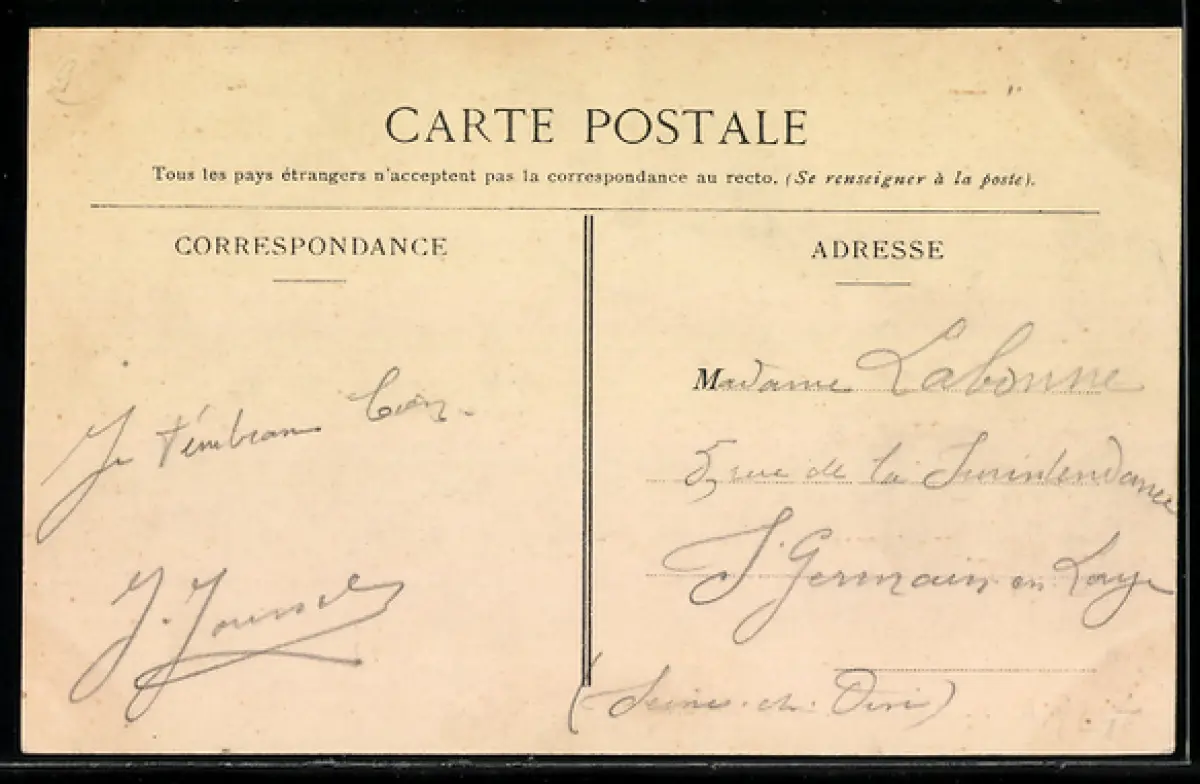 CARTE POSTALE
Tous les pays étrangers n'acceptent pas la correspondance au recto. (Se renseigner à la poste).
CORRESPONDANCE
Je t'embrasse bien.
J. Jousset
ADRESSE
Madame Labonne
5 rue de la Surintendance
St Germain en Laye
(Seine-et-Oise)